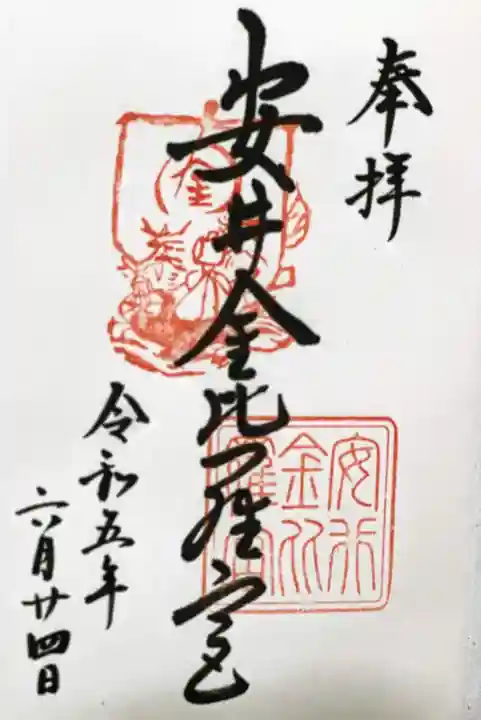 奉拝
安井金比羅宮
令和五年
六月廿四日
金
安井
金比
羅宮